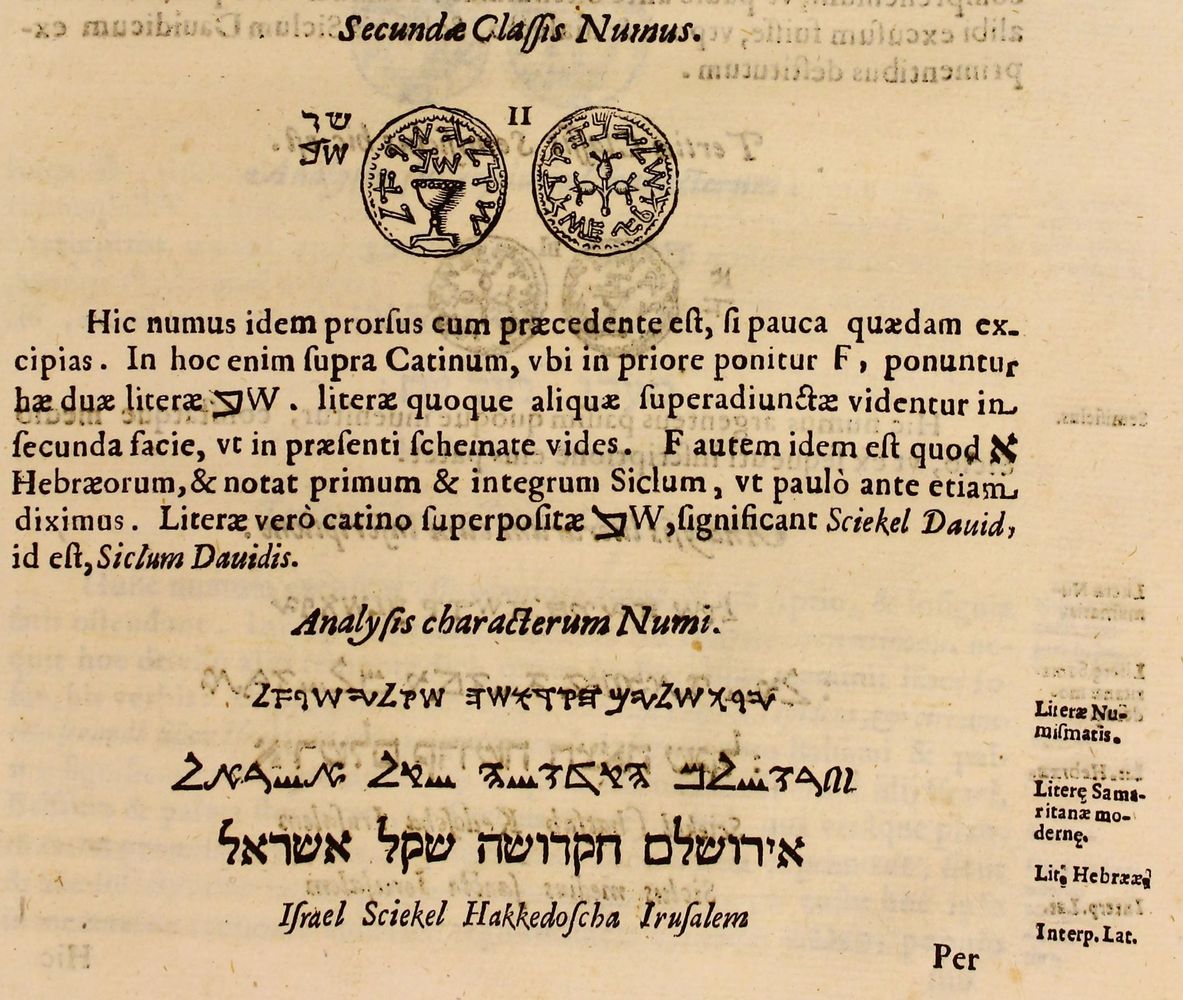 Secundæ Claſſis Numus.
שד
II
Hic numus idem prorſus cum præcedente eſt, ſi pauca quædam ex-
cipias. In hoc enim ſupra Catinum, vbi in priore ponitur F, ponuntur
hæ duæ literæ W. literæ quoque aliquæ ſuperadiunctæ videntur in
ſecunda facie, vt in præſenti ſchemate vides. F autem idem eſt quod א
Hebræorum, & notat primum & integrum Siclum, vt paulò ante etiam
diximus. Literæ verò catino ſuperpoſitæ W, ſignificant Sciekel Dauid,
id eſt, Siclum Dauidis.
Analyſis characterum Numi.
Literæ Nu-
miſmatis.
Literę Sama-
ritanæ mo-
dernę.
אירושלם הקדושה שקל אשראל
Lit. Hebrææ
Iſrael Sciekel Hakkedoſcha Iruſalem
Interp. Lat.
Per